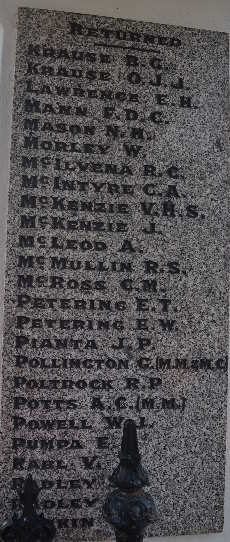 RETURNED
KRAUSE R.G.
KRAUSE O.J.J.
LAWRENCE E.H.
MANN F.D.C.
MASON N.H.
MORLEY W.
McILVENA R.C.
McINTYRE C.A.
McKENZIE V.H.S.
McKENZIE J.
McLEOD A.
McMULLIN R.S.
McROSS C.M.
PETERING E.T.
PETERING E.W.
PIANTA J.P.
POLLINGTON G.(M.M.&M.C)
POLTROCK R.P.
POTTS A.C.(M.M.)
POWELL W.J.
PUMPA E.
RABL V.